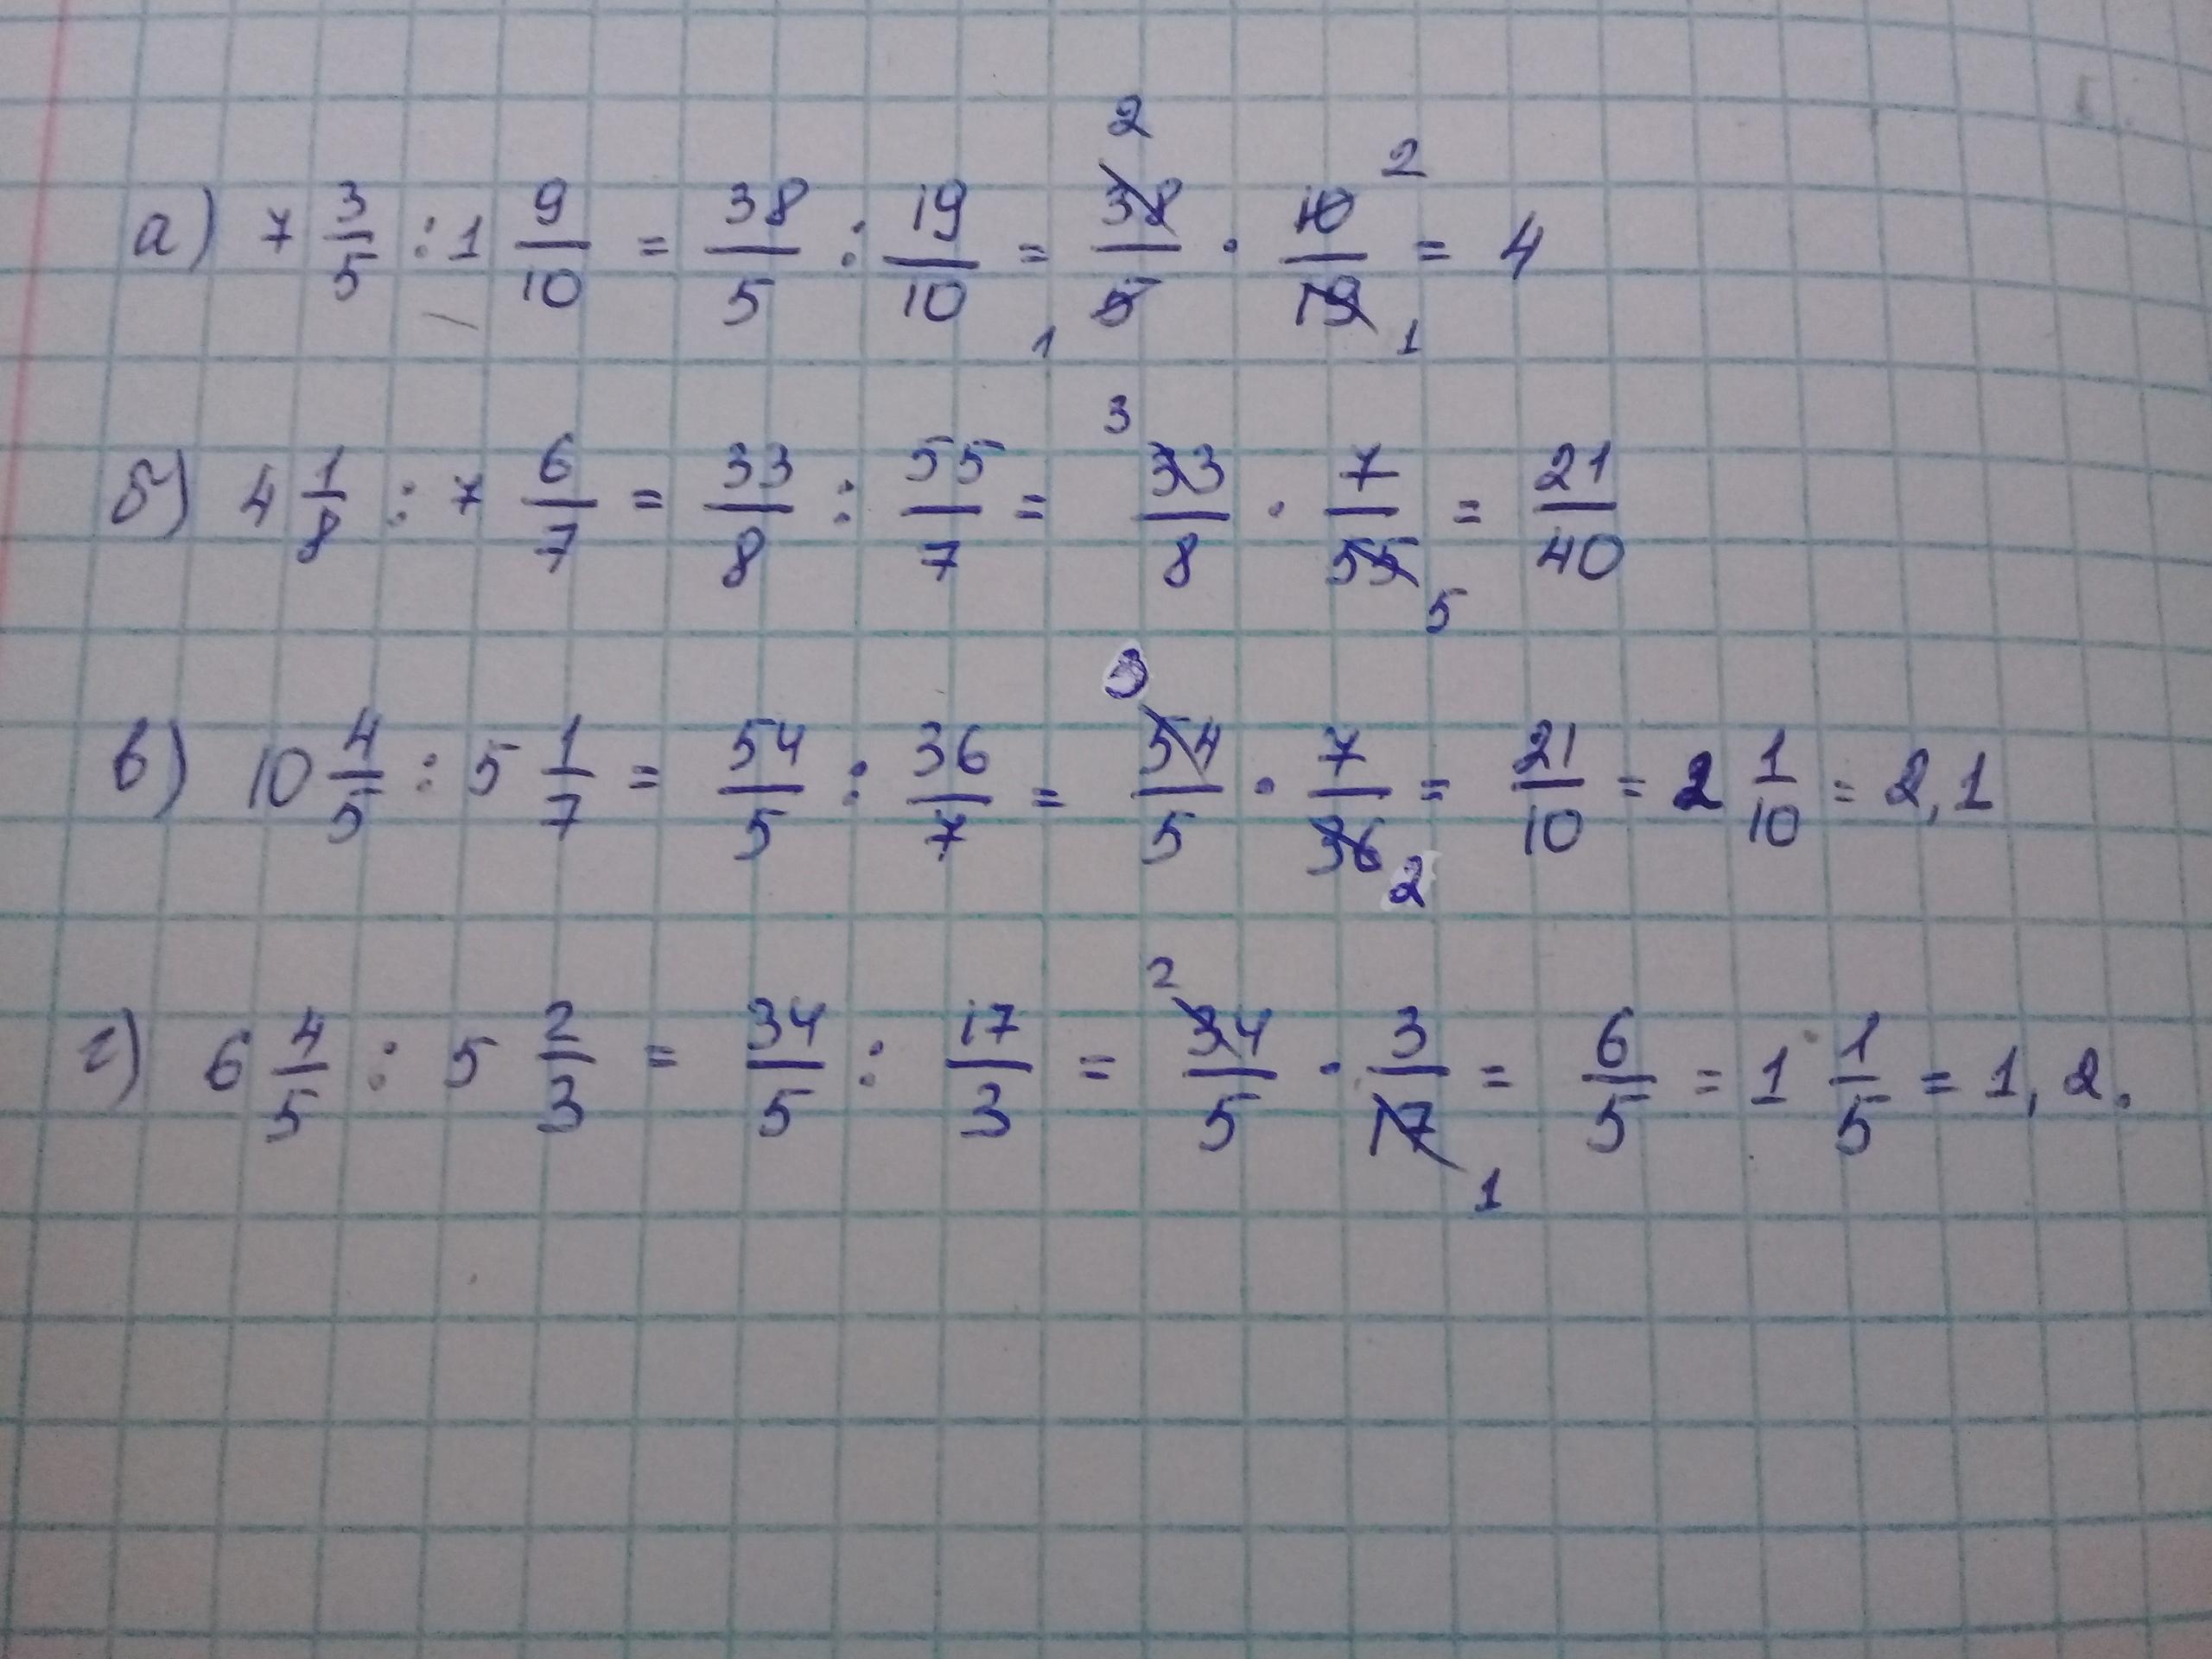 а) 7 3/5 : 1 9/10 = 38/5 : 19/10 = 38/5 · 10/19 = 4
б) 4 1/8 : 7 6/7 = 33/8 : 55/7 = 33/8 · 7/55 = 21/40
в) 10 4/5 : 5 1/7 = 54/5 : 36/7 = 54/5 · 7/36 = 21/10 = 2 1/10 = 2,1
г) 6 4/5 : 5 2/3 = 34/5 : 17/3 = 34/5 · 3/17 = 6/5 = 1 1/5 = 1,2.